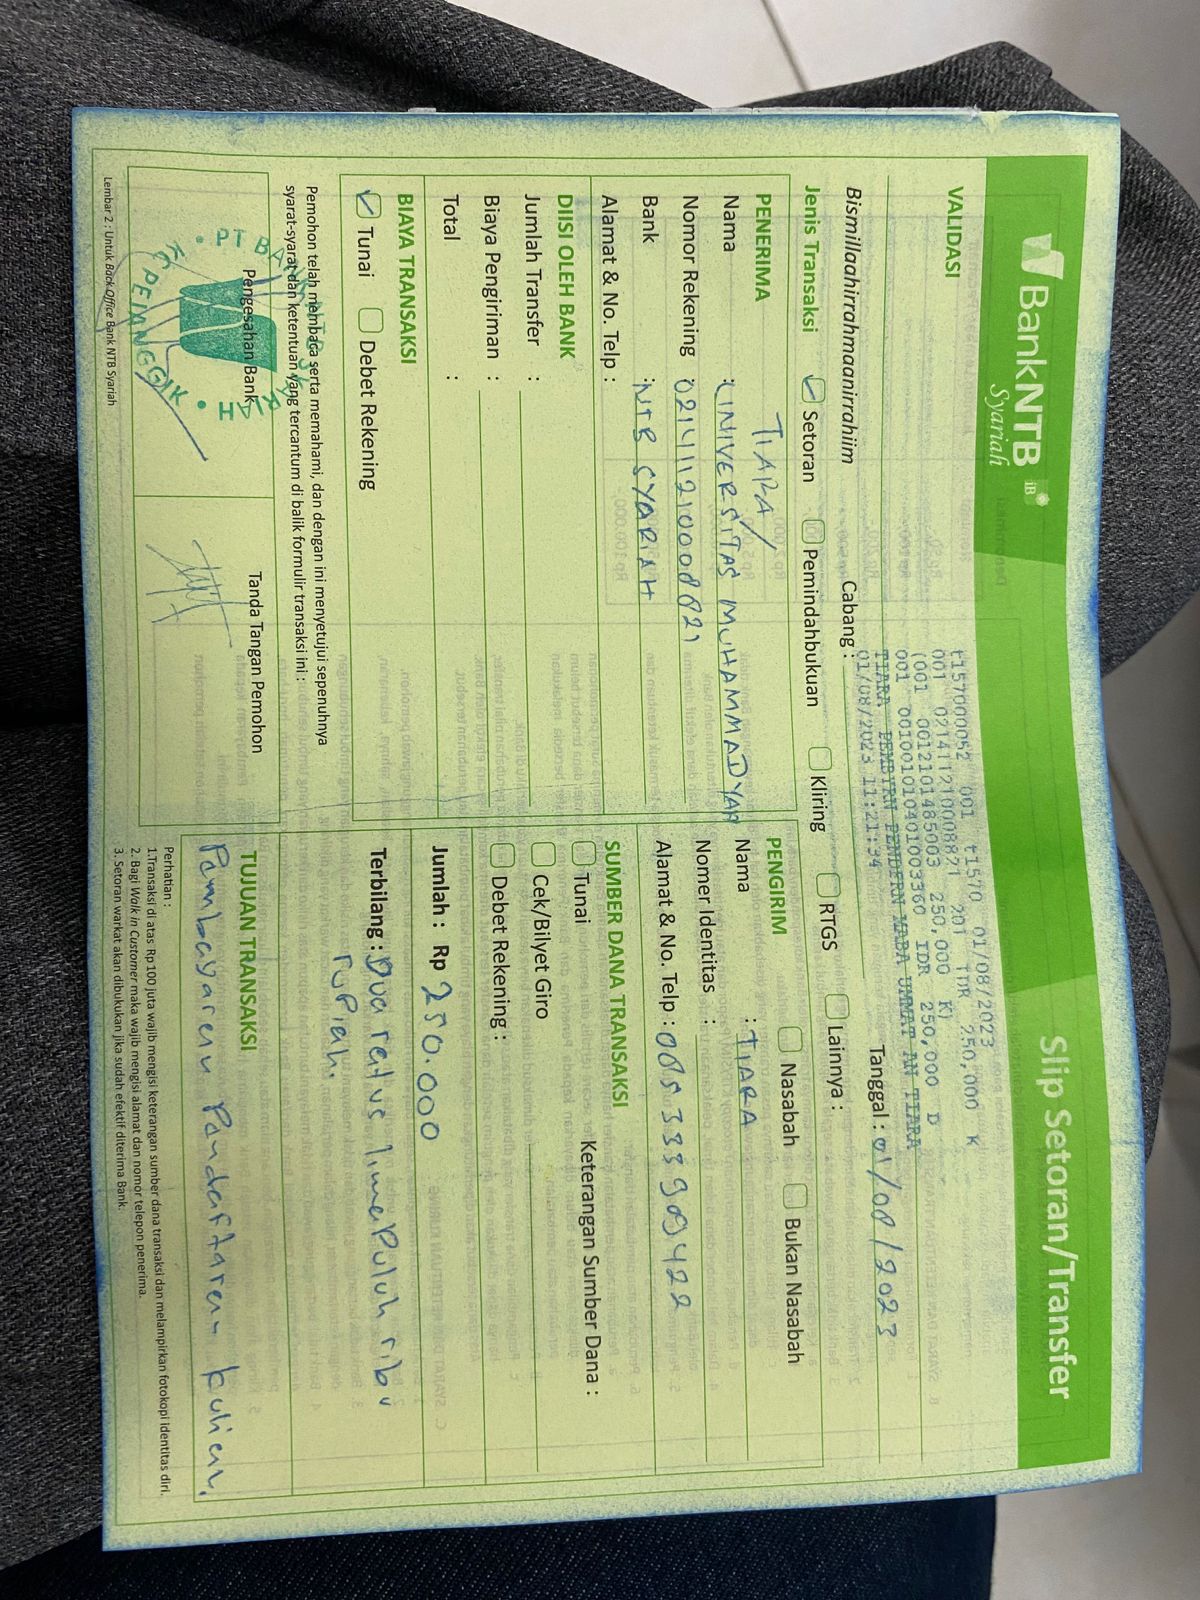 BankNTB iB
Syariah
Slip Setoran/Transfer
VALIDASI
t157000052 001 t1570 01/08/2023
001 0214112100088?1 201 IDR 250,000 K
(001 0012101485003 250,000 K)
001 001001010401003360 IDR 250,000 D
TIARA PEMBYRN PENDFRN MABA UMMAT AN TIARA
01/08/2023 11:21:34
Bismillaahirrahmaanirrahiim
Cabang :
Tanggal : 01/08/2023
Jenis Transaksi
Setoran
Pemindahbukuan
Kliring
RTGS
Lainnya :
PENERIMA
TIARA/
Nama : UNIVERSITAS MUHAMMADYAH
Nomor Rekening 021411210008821
Bank : NTB SYARIAH
Alamat & No. Telp :
PENGIRIM
Nasabah
Bukan Nasabah
Nama : TIARA
Nomer Identitas :
Alamat & No. Telp : 085333909422
DIISI OLEH BANK
Jumlah Transfer :
Biaya Pengiriman :
Total :
SUMBER DANA TRANSAKSI
Tunai
Keterangan Sumber Dana :
Cek/Bilyet Giro
Debet Rekening :
BIAYA TRANSAKSI
Tunai
Debet Rekening
Jumlah : Rp 250.000
Terbilang : Dua ratus lima Puluh ribu
rupiah.
Pemohon telah membaca serta memahami, dan dengan ini menyetujui sepenuhnya
syarat-syarat dan ketentuan yang tercantum di balik formulir transaksi ini :
Pengesahan Bank
Tanda Tangan Pemohon
PT BANK NTB SYARIAH
KC PEJANGGIK
TUJUAN TRANSAKSI
Pembayaran Pendaftaran kuliah.
Perhatian :
1.Transaksi di atas Rp 100 juta wajib mengisi keterangan sumber dana transaksi dan melampirkan fotokopi identitas diri.
2. Bagi Walk in Customer maka wajib mengisi alamat dan nomor telepon penerima.
3. Setoran warkat akan dibukukan jika sudah efektif diterima Bank.
Lembar 2 : Untuk Back Office Bank NTB Syariah